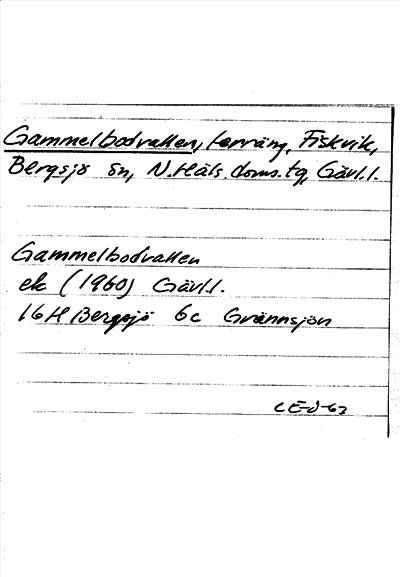 Gammelbodvallen, terräng, Fiskvik,
Bergsjö sn, N.Häls.doms.tg, Gävl.l.
Gammelbodvallen
ek (1960) Gävl.l.
16H Bergsjö 6c Grännsjön
CE-J-62